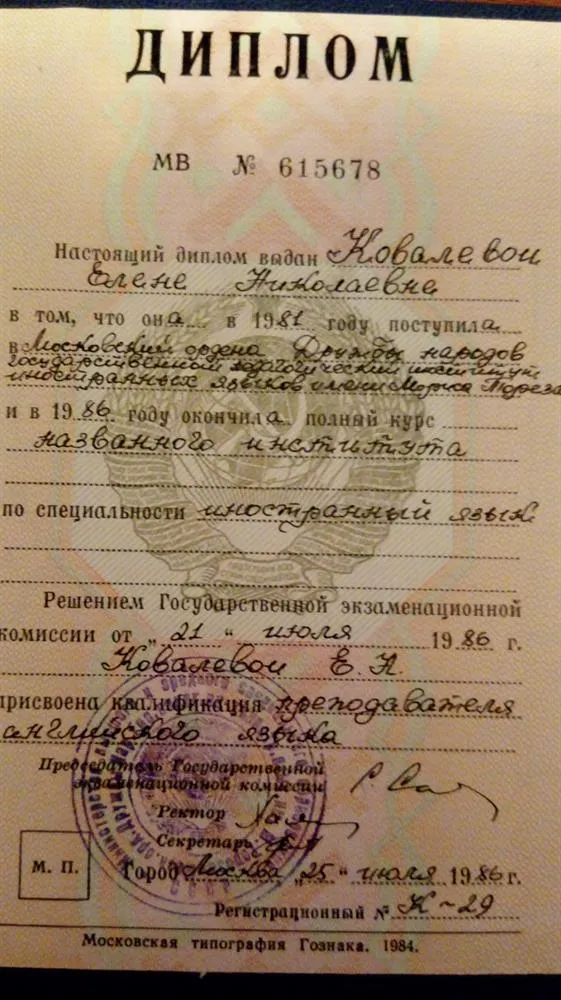 ДИПЛОМ
МВ № 615678
Настоящий диплом выдан Ковалевой
Елене Николаевне
в том, что она в 1981 году поступила
в Московский ордена Дружбы народов
государственный педагогический институт
иностранных языков имени Мориса Тореза
и в 1986 году окончила полный курс
названного института
по специальности иностранный язык
Решением Государственной экзаменационной
комиссии от „21“ июля 1986 г.
Ковалевой Е. Н.
присвоена квалификация преподавателя
английского языка
Председатель Государственной
экзаменационной комиссии
Ректор
Секретарь
М. П.
Город Москва „25“ июля 1986 г.
Регистрационный № К-29
Московская типография Гознака. 1984.